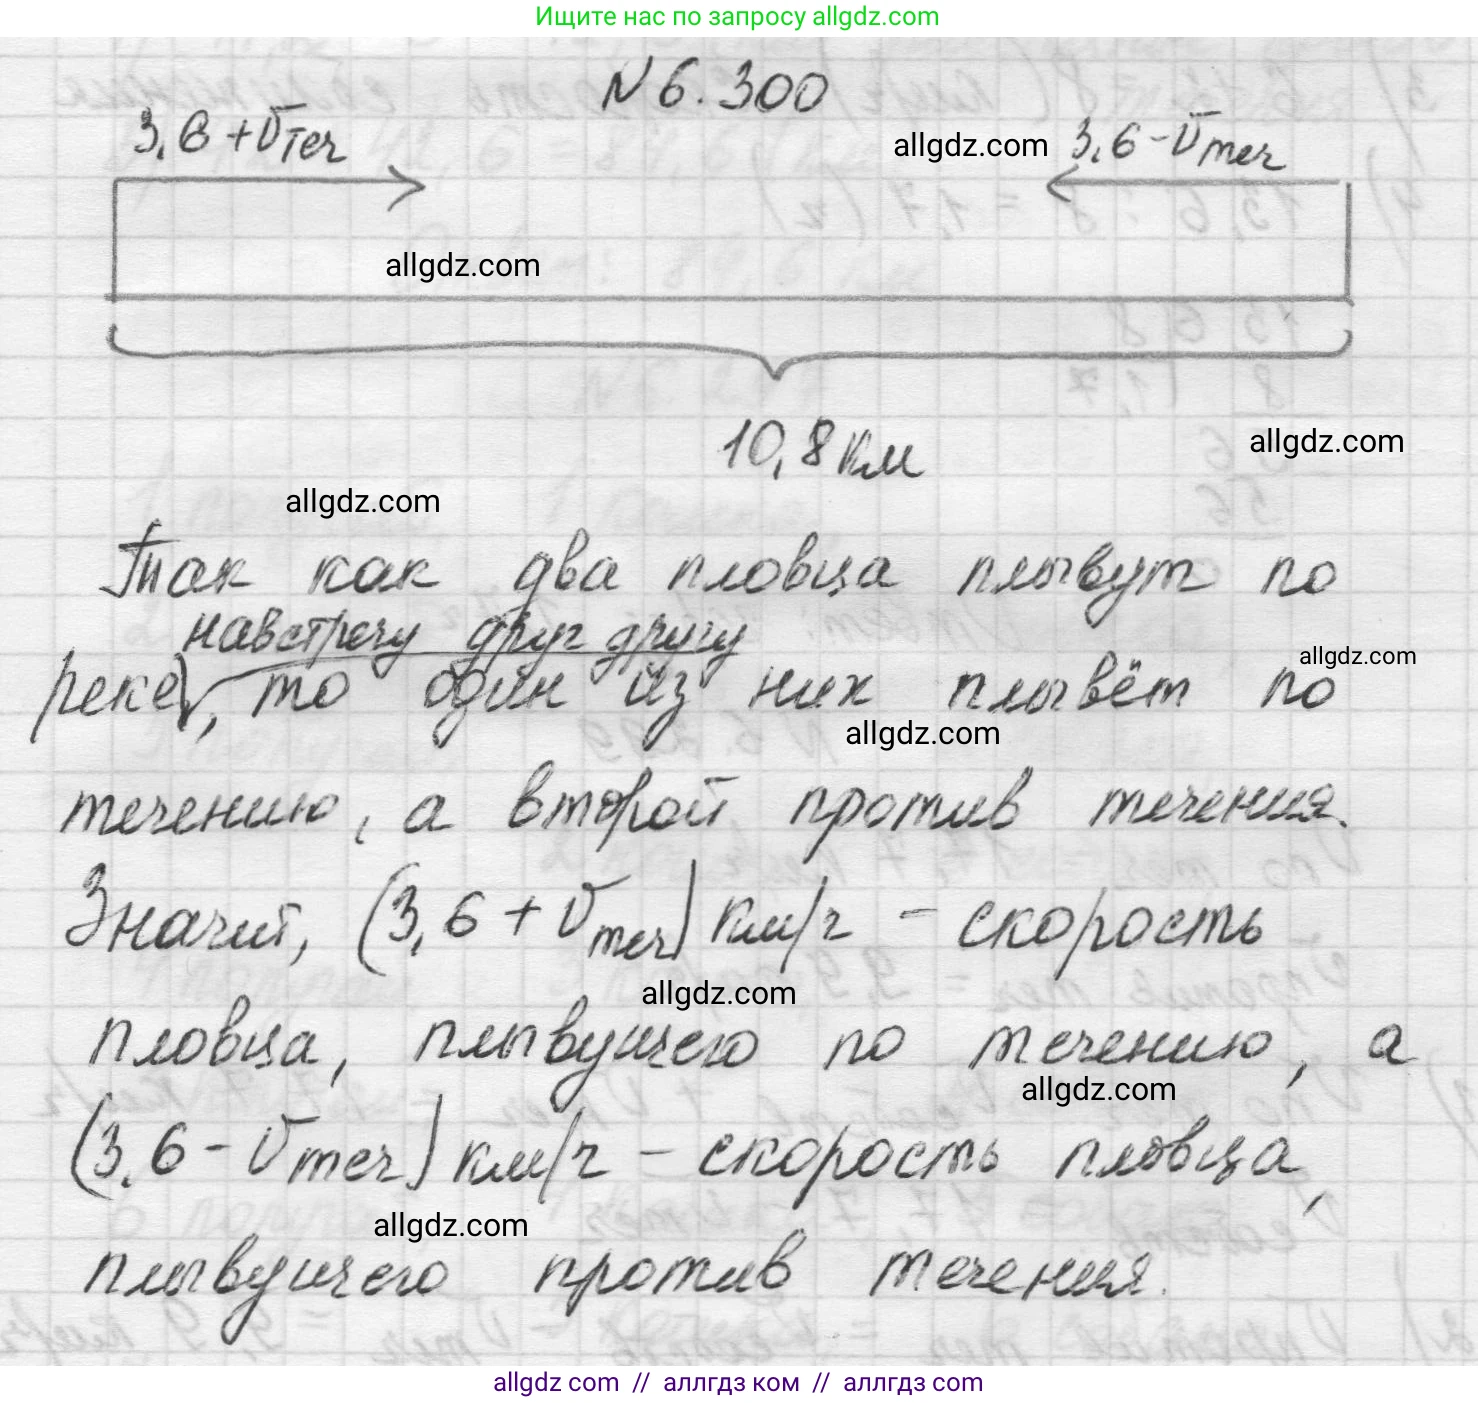 Ищите нас по запросу allgdz.com
N 6.300
3,6 + Vтеч
allgdz.com
3,6 - Vтеч
allgdz.com
10,8 км
allgdz.com
allgdz.com
Так как два пловца плывут по
навстречу друг другу
реке, то один из них плывёт по
allgdz.com
allgdz.com
течению, а второй против течения.
Значит, (3,6 + Vтеч) км/ч - скорость
allgdz.com
пловца, плывущего по течению, а
allgdz.com
(3,6 - Vтеч) км/ч - скорость пловца,
allgdz.com
плывущего против течения.
allgdz com // аллгдз ком // allgdz com